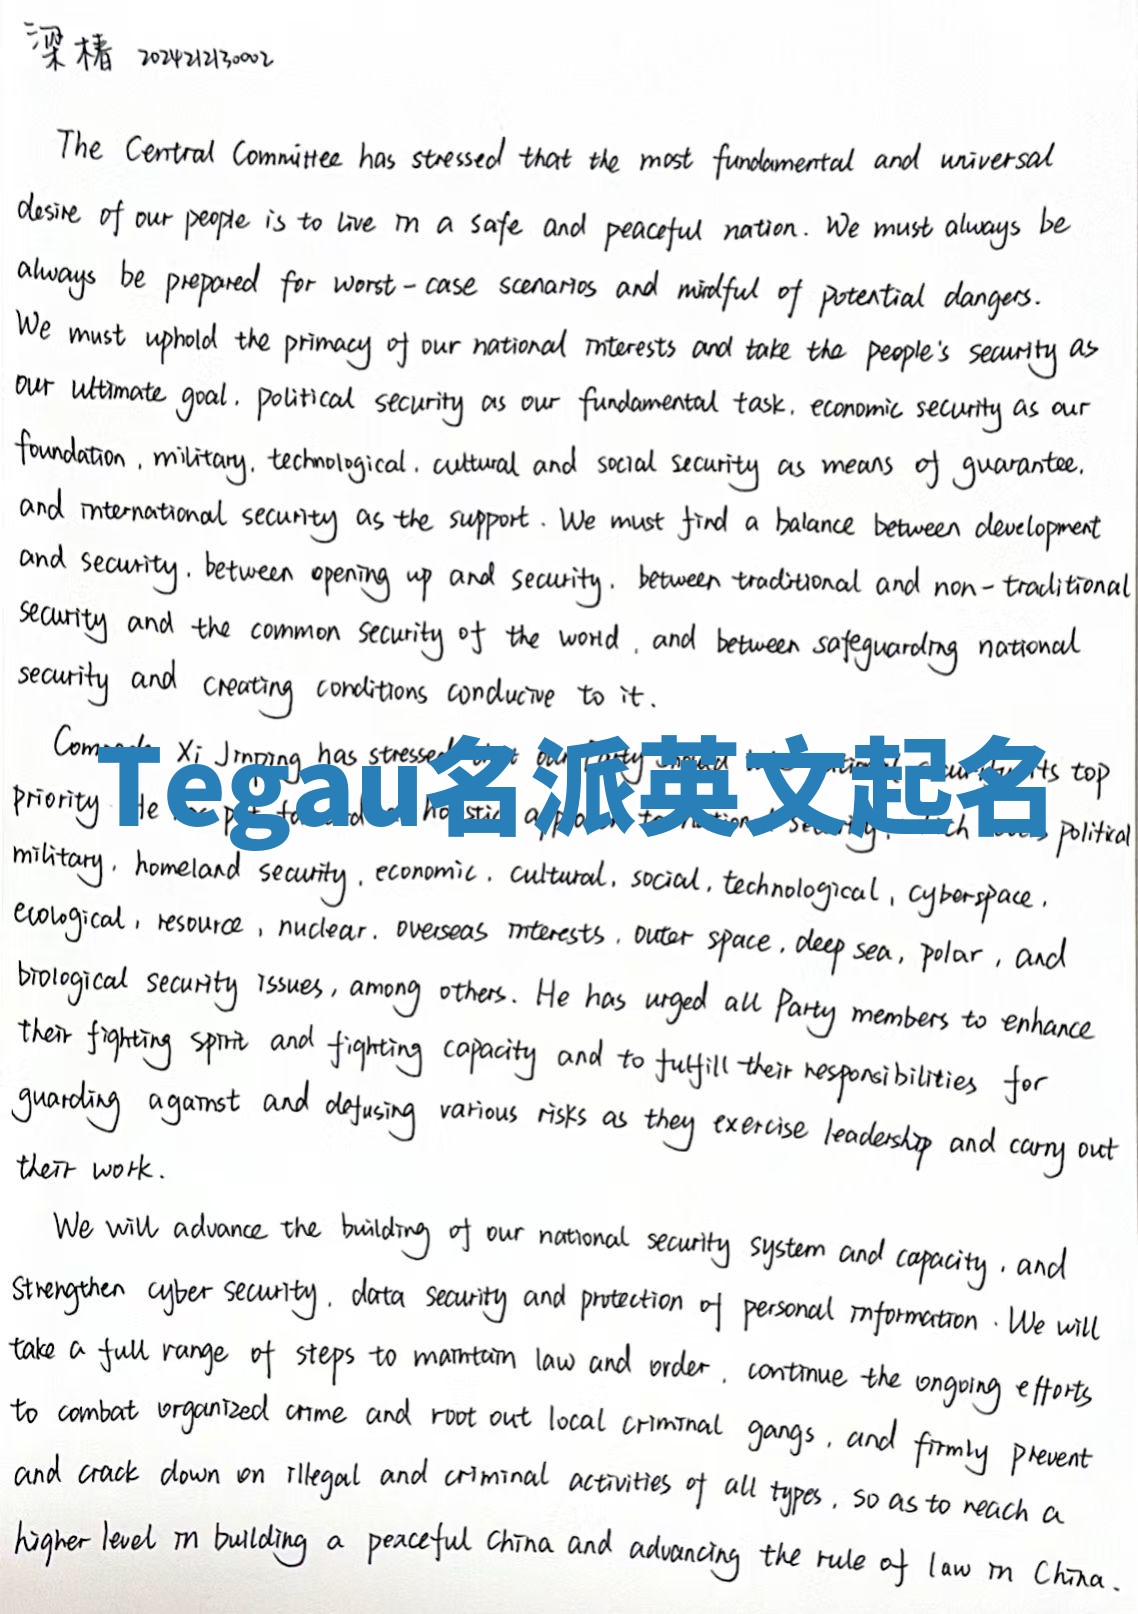 梁楮 2024212130002
The Central Committee has stressed that the most fundamental and universal
desire of our people is to live in a safe and peaceful nation. We must always be
always be prepared for worst-case scenarios and mindful of potential dangers.
We must uphold the primacy of our national interests and take the people's security as
our ultimate goal, political security as our fundamental task, economic security as our
foundation, military, technological, cultural and social security as means of guarantee,
and international security as the support. We must find a balance between development
and security, between opening up and security, between traditional and non-traditional
security and the common security of the world, and between safeguarding national
security and creating conditions conducive to it.
Xi Jinping has stressed our Party its top
Tegau名派英文起名
priority He political
military, homeland security, economic, cultural, social, technological, cyberspace,
ecological, resource, nuclear, overseas interests, outer space, deep sea, polar, and
biological security issues, among others. He has urged all Party members to enhance
their fighting spirit and fighting capacity and to fulfill their responsibilities for
guarding against and defusing various risks as they exercise leadership and carry out
their work.
We will advance the building of our national security system and capacity, and
strengthen cyber security, data security and protection of personal information. We will
take a full range of steps to maintain law and order, continue the ongoing efforts
to combat organized crime and root out local criminal gangs, and firmly prevent
and crack down on illegal and criminal activities of all types, so as to reach a
higher level in building a peaceful China and advancing the rule of law in China.